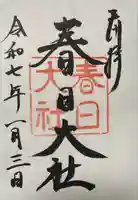 奉拝
春日大社
令和七年一月三日
春日
大社